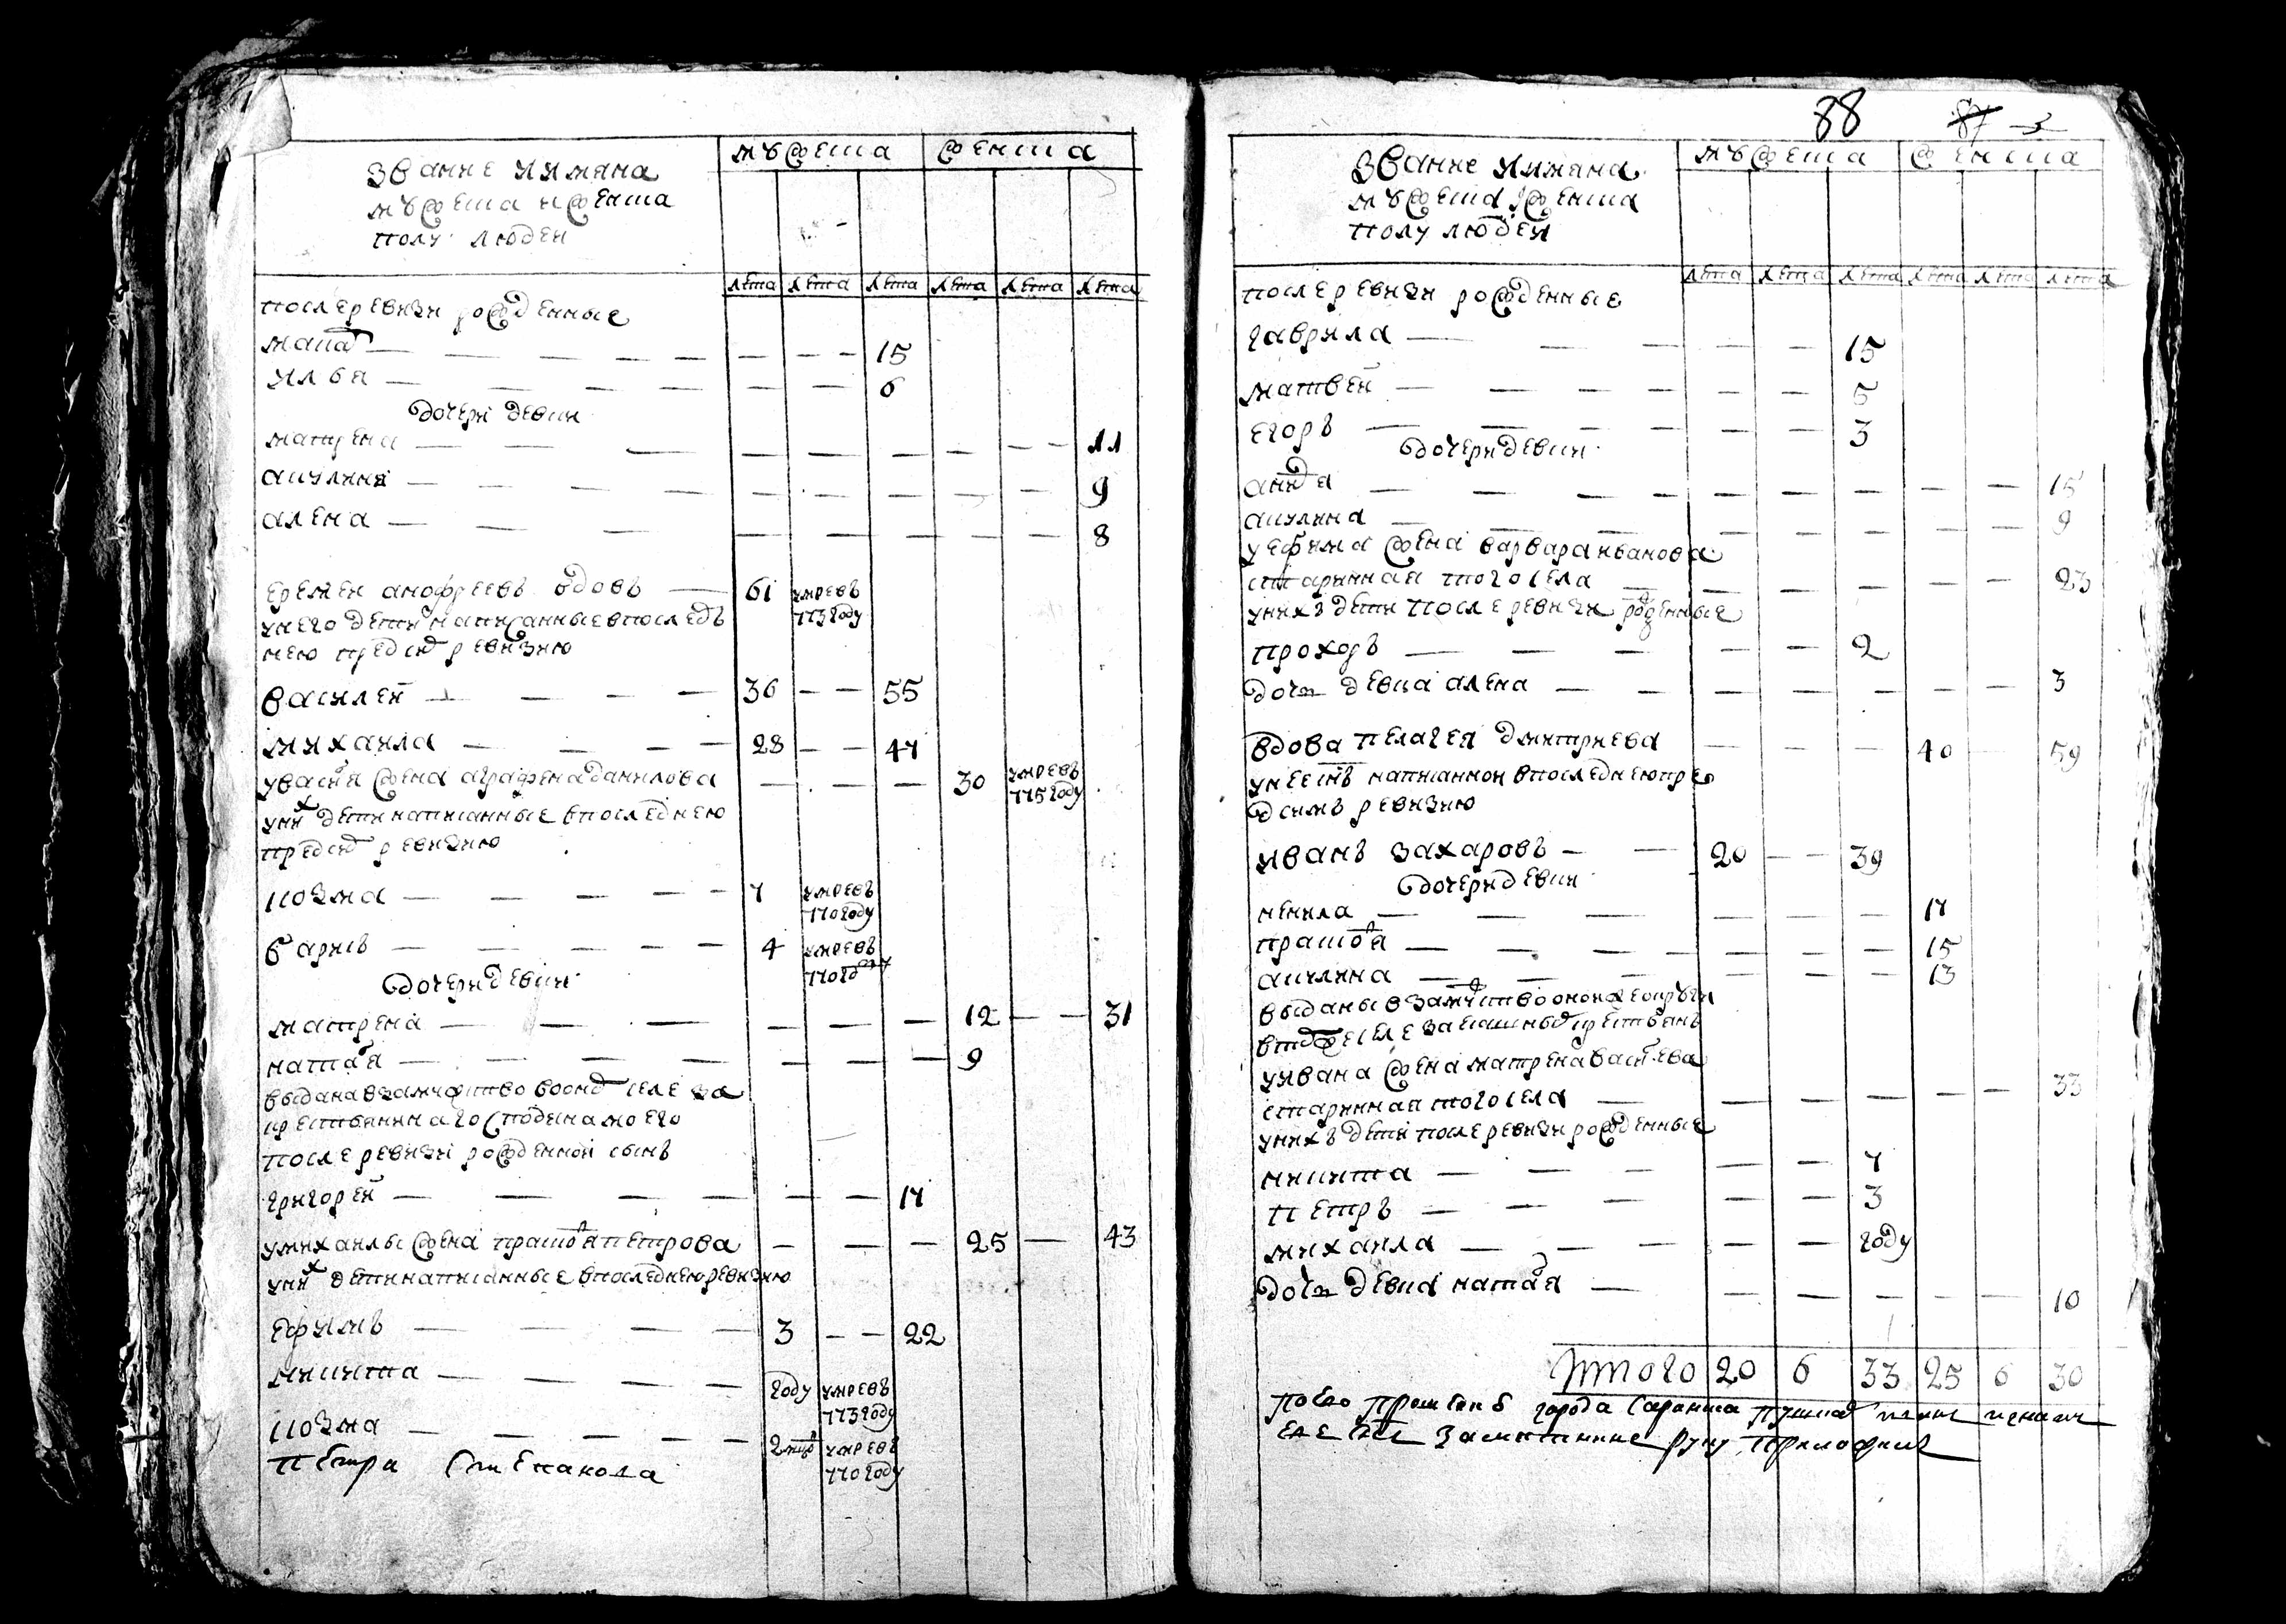 звание и имяна
мужеска и женска
полу людей
мужеска женска
лета лета лета лета лета лета
после ревизи рожденные
15
илья — 6
дочери девки
матрена — 11
акулина — 9
алена — 8
еремей анофреевъ вдовъ — 61 умревъ
773 году
у него дети написанные в последъ
нею пред сей ревизию
василей — 36 — 55
михаила — 28 — 47
у васия жена аграфена данилова — 30 умревъ
775 году
у них дети написанные в последнею
пред сей ревизию
козма — 7 умревъ
770 году
4 умревъ
770 году
дочери девки
матрена — 12 — 31
наталя — 9
выдана взамужство в оном селе за
крестьянина господина моего
после ревизи рожденной сынъ
григорей — 17
у михаилы жена прасковя петрова — 25 — 43
у них дети написанные в последнею ревизию
ефимъ — 3 — 22
никита — году умревъ
773 году
козма — 2 умревъ
770 году
петра степанова
88 87 3
звание и имяна
мужеска и женска
полу людей
мужеска женска
лета лета лета лета лета лета
после ревизи рожденные
гаврила — 15
матвей — 5
егоръ — 3
дочери девки
15
акулина — 9
у ефима жена варвара иванова
старинная того села — 23
у нихъ дети после ревизи рожденные
прохоръ — 2
дочь девка алена — 3
вдова пелагея дмитриева — 40 — 59
у нее сынъ написанной в последнею пре
д симъ ревизию
иванъ захаровъ — 20 — 39
дочери девки
ненила — 17
прасковя — 15
акулина — 13
выданы взамужство оной округи
в селе крестьянъ
у ивана жена матрена васильева
старинная того села — 33
у нихъ дети после ревизи рожденные
никита — 7
петръ — 3
михаила — году
дочь девка наталя — 10
итого 20 6 33 25 6 30
города саранска
руку приложилъ